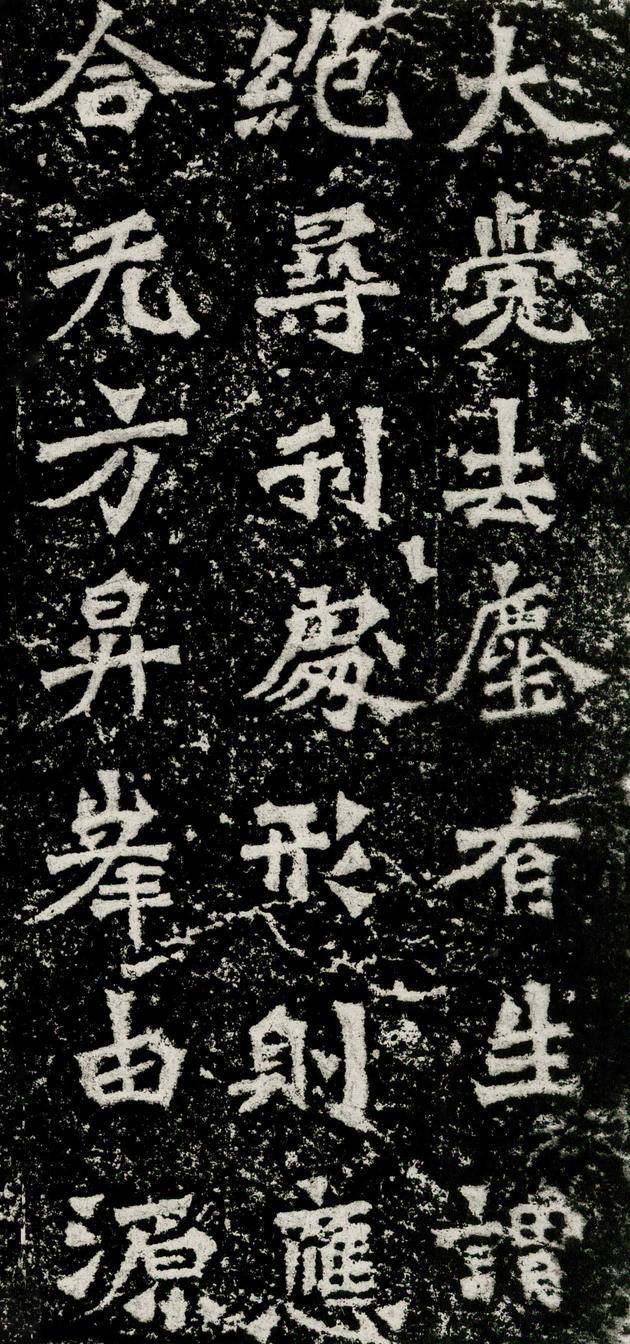 大覺去塵有生謂
絕尋刹處形則應
合无方昇峯由源